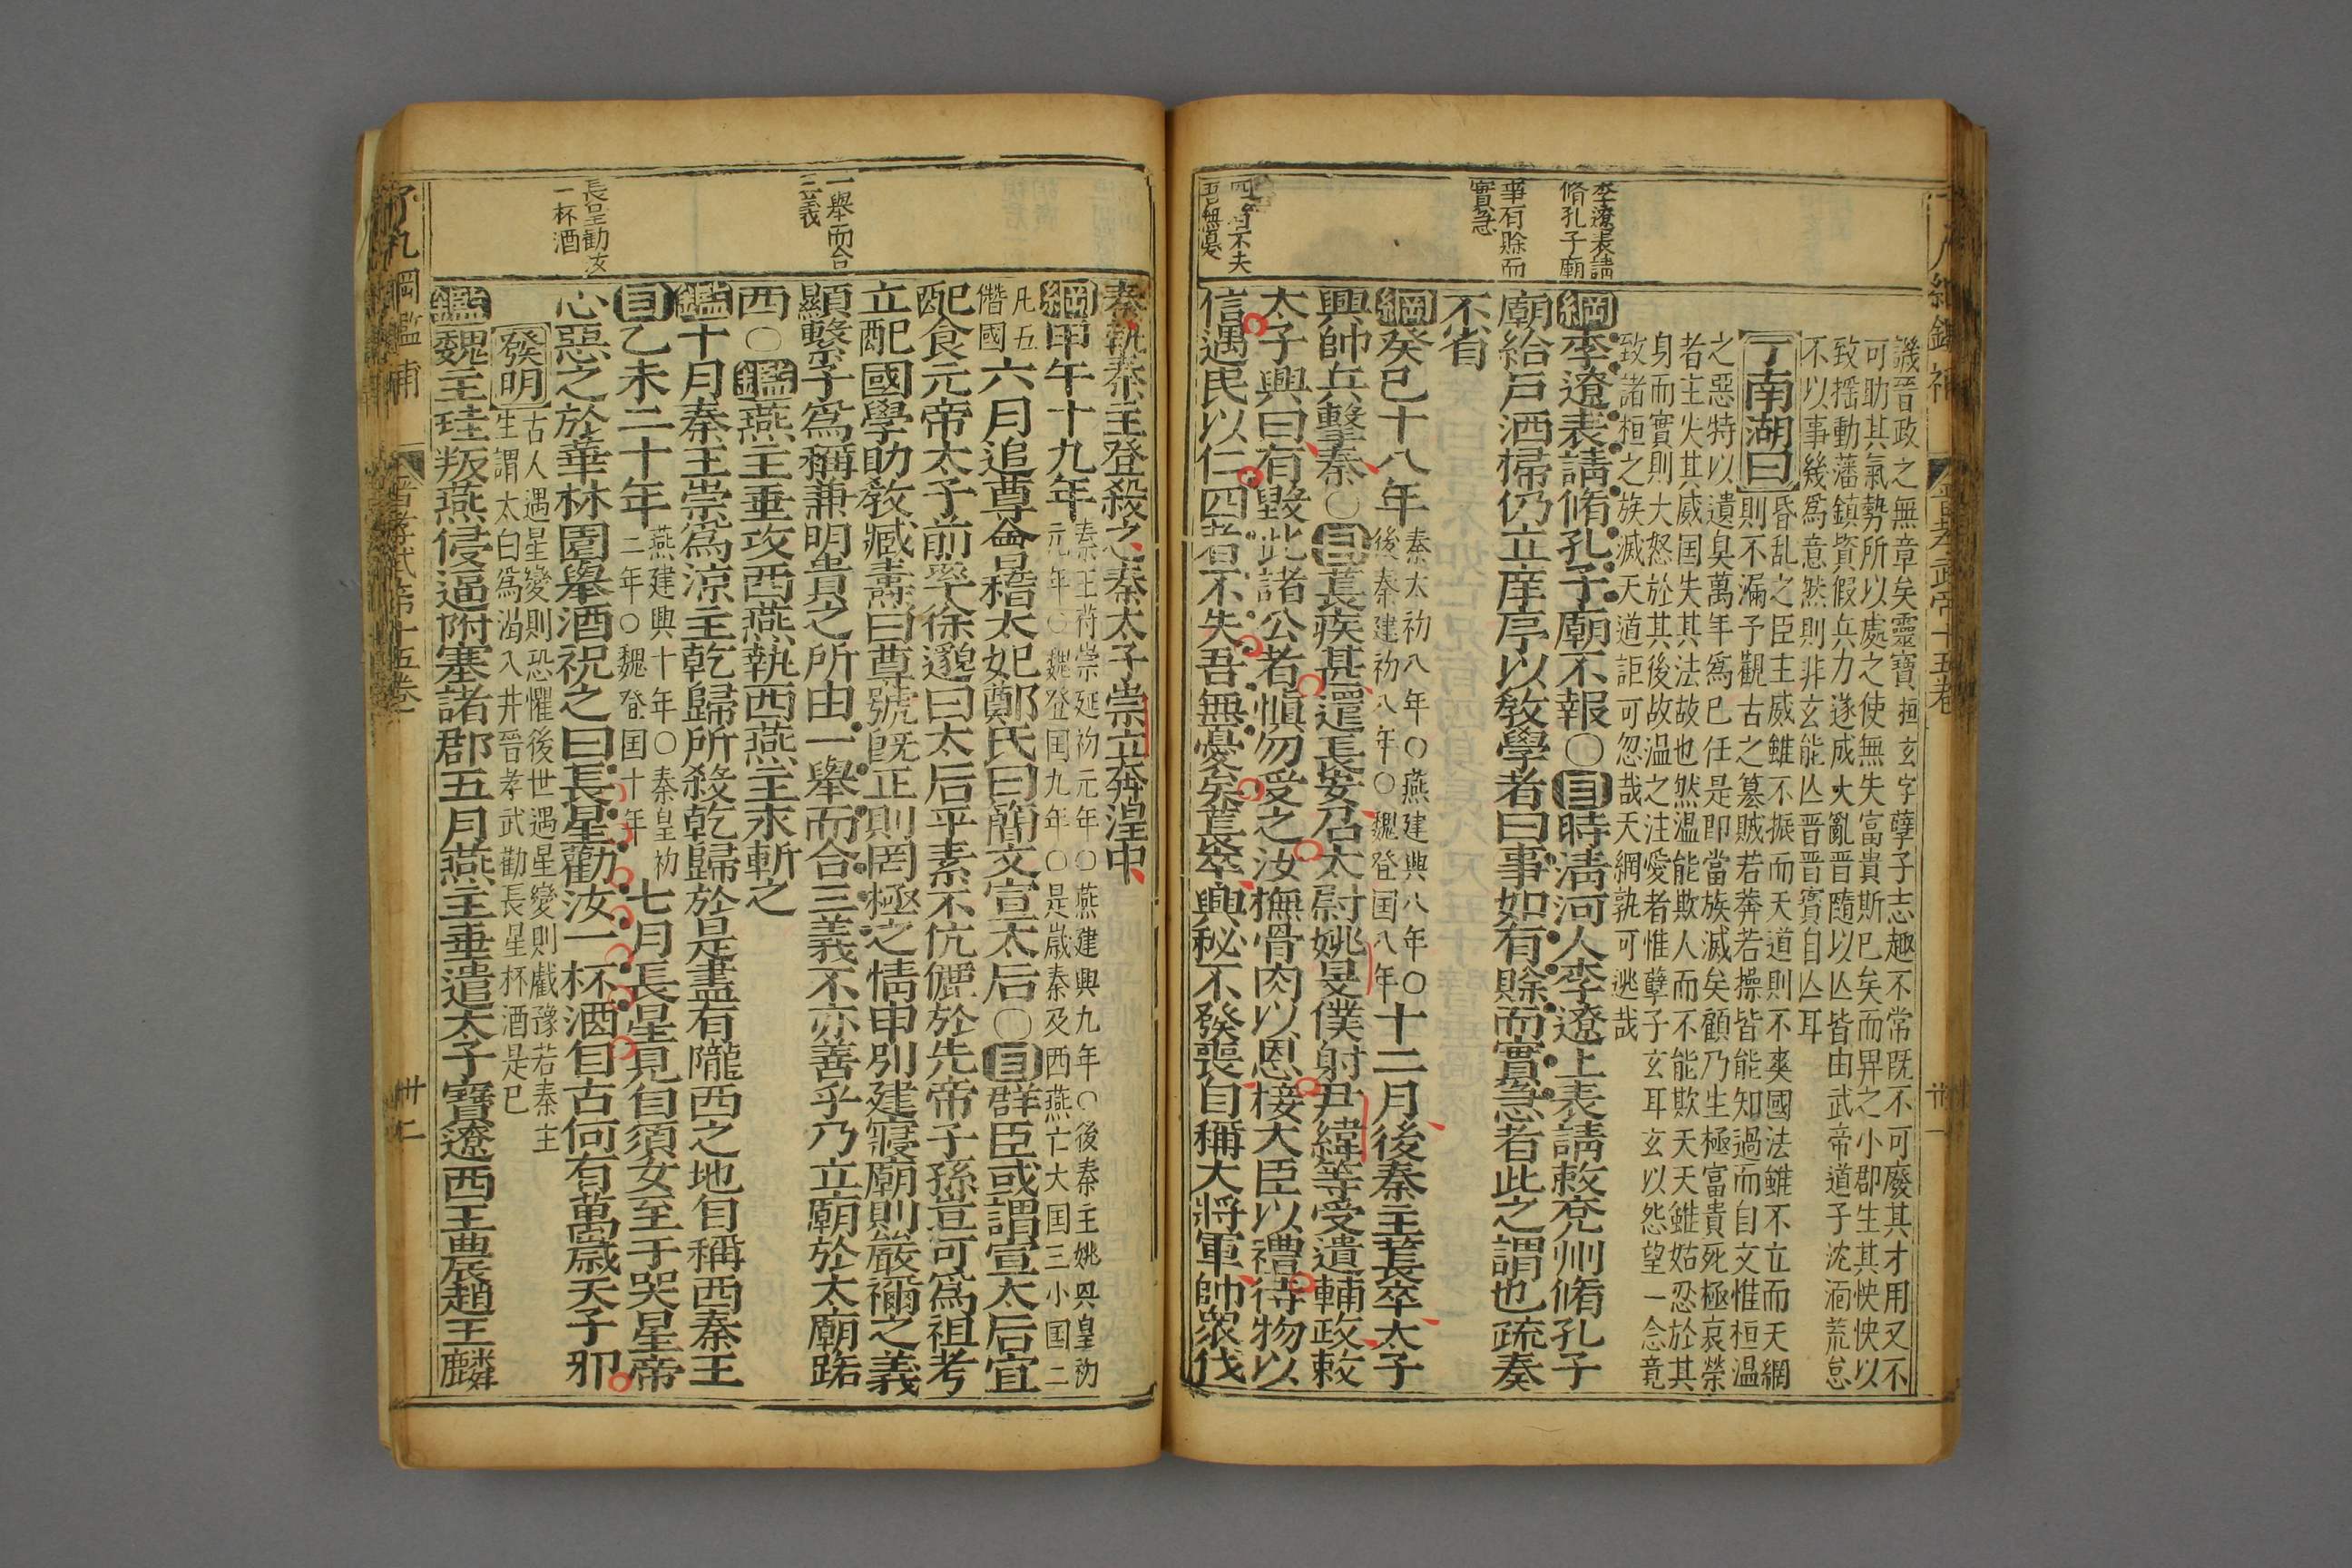 譏晉政之無章矣靈寶桓玄字孽子志趣不常旣不可廢其才用又不
可助其氣勢所以處之使無失富貴斯巳矣而畀之小郡生其怏怏以
致揺動藩鎮資假兵力遂成大亂晉隨以亾皆由武帝道子沈湎荒怠
不以事幾爲意然則非玄能亾晉晉實自亾耳
丁南湖曰
昏乱之臣主威雖不振而天道則不爽國法雖不立而天網
則不漏予觀古之簒賊若莾若操皆能知過而自文惟桓温
之惡特以遺臭萬年爲巳任是即當族滅矣顧乃生極富貴死極哀榮
者主失其威国失其法故也然温能欺人而不能欺天天雖姑忍於其
身而實則大怒於其後故温之注愛者惟孽子玄耳玄以怨望一念竟
致諸桓之族滅天道詎可忽哉天網孰可逃哉
李遼表請
脩孔子廟
綱李遼表請脩孔子廟不報〇目時淸河人李遼上表請敕兖州脩孔子
廟給戸洒掃仍立庠序以教學者曰事如有賖而實急者此之謂也疏奏
事有賖而
實急
不省
綱癸巳十八年
秦太初八年〇燕建興八年〇
後秦建初八年〇魏登国八年
十二月後秦主萇卒太子
興帥兵擊秦〇目萇疾甚還長安召太尉姚旻僕射尹緯等受遺輔政敕
太子興曰有毀此諸公者愼勿受之汝撫骨肉以恩接大臣以禮待物以
四者不失
吾無憂
信遇民以仁四者不失吾無憂矣萇卒興秘不發喪自稱大將軍帥衆伐
秦執秦主登殺之秦太子崇立奔湟中
綱甲午十九年
秦王苻崇延初元年〇燕建興九年〇後秦主姚興皇初
元年〇魏登国九年〇是歲秦及西燕亡大国三小国二
凡五
僭國
六月追尊會稽太妃鄭氏曰簡文宣太后〇目群臣或謂宣太后宜
配食元帝太子前率徐邈曰太后平素不伉儷於先帝子孫豈可爲祖考
立配國學助教臧燾曰尊號旣正則罔極之情申别建寢廟則嚴禰之義
一舉而合
三義
顯繫子爲稱兼明貴之所由一舉而合三義不亦善乎乃立廟於太廟路
西〇鑑燕主垂攻西燕執西燕主永斬之
鑑十月秦王崇爲涼主乾歸所殺乾歸於是盡有隴西之地自稱西秦王
目乙未二十年
燕建興十年〇秦皇初
二年〇魏登国十年
七月長星見自須女至于哭星帝
長星勸汝
一杯酒
心惡之於華林園舉酒祝之曰長星勸汝一杯酒自古何有萬歲天子邪
發明
古人遇星變則恐懼後世遇星變則戲豫若秦主
生謂太白爲渴入井晉孝武勸長星杯酒是已
鑑魏主珪叛燕侵逼附塞諸郡五月燕主垂遣太子寶遼西王農趙王麟
晉孝武帝十五卷
卅二